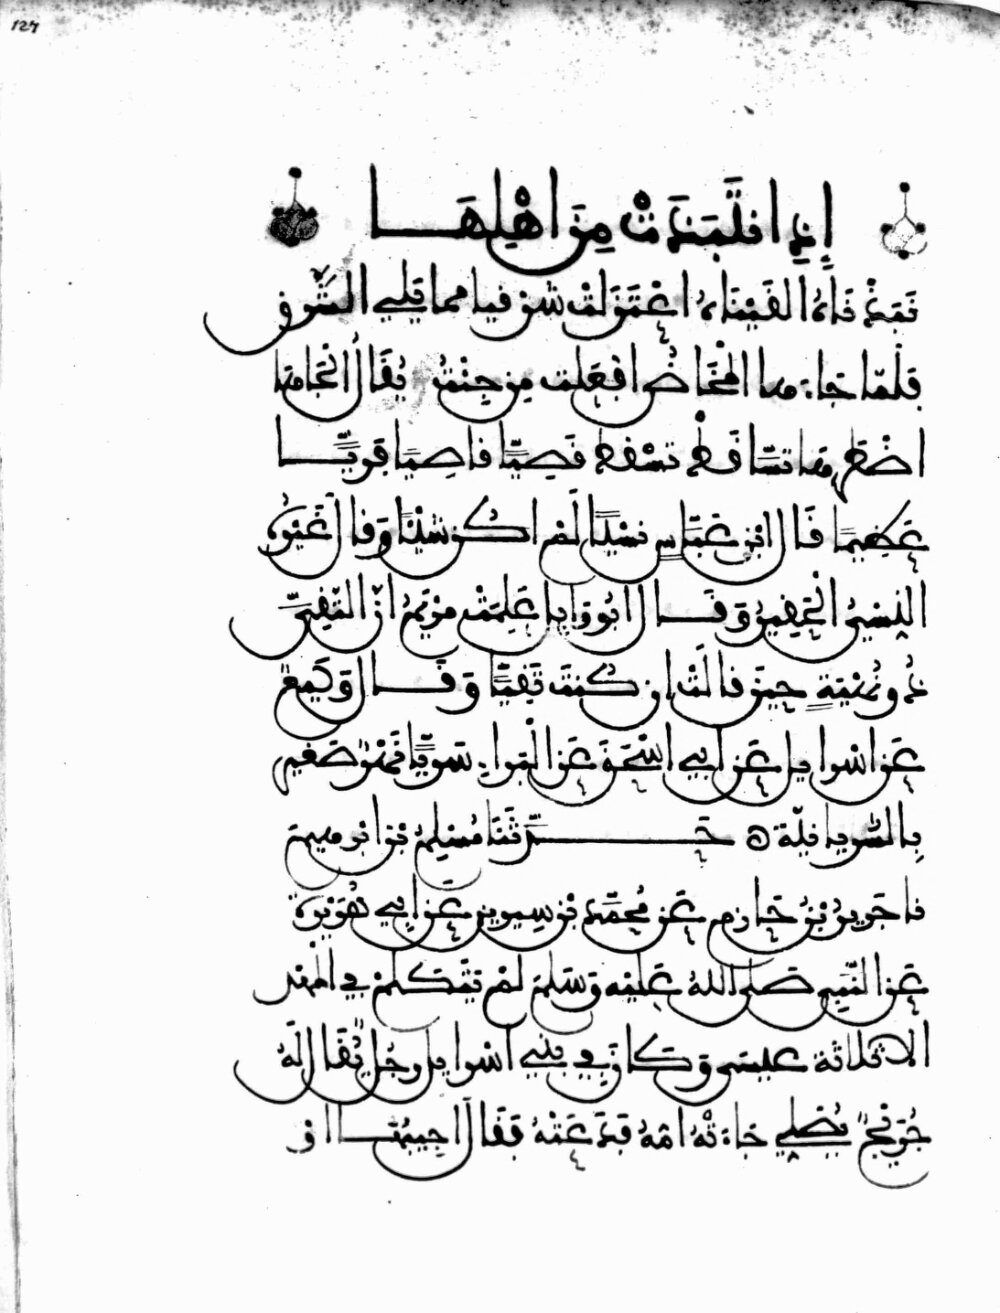 127
إِذِ انتَبَذَتْ مِنَ اهْلِهَا
فَنَبَذْنَاهُ الْقَيْنَاهُ اعْتَزَلَتْ شَرْقِيا مما يَلِي الشَّرْقَ
فَلَمَّا جَاءَهَا الْمَخَاضُ افْعَلَتْ مِنْ جِئْتُ يُقَالُ الْجَأَهَا
اضْطَرَّهَا تَسَّاقَطْ تَسْقُطْ قَصِيًّا قَاصِيًا فَرِيًّا
عَظِيمًا قَالَ ابْنُ عَبَّاسٍ نَسْيًا لَمْ اكُنْ شَيْئًا وَقَالَ غَيْرُهُ
النِّسْيُ الْحَقِيرُ وَقَالَ ابُو وَايِلٍ عَلِمَتْ مَرْيَمُ انَّ التَّقِيَّ
ذُو نُهْيَةٍ حِينَ قَالَتْ ان كُنْتَ تَقِيًّا وَقَالَ وَكِيعٌ
عَنِ اسْرَايِلَ عَنَ ابِي اسْحَقَ عَنِ الْبَرَاءِ سَرِيًّا نَهْرٌ صَغِيرٌ
بِالسُّرْيَانِيَّةِ ه حَدَّثَنَا مُسْلِمُ بْنُ ابْرهِيمَ
نا جَرِيرُ بْنُ حَازِمٍ عَنْ مُحَمَّدِ بْنِ سِيرِينَ عَنَ ابِي هُرَيْرَةَ
عَنِ النَّبِيِّ صَلَّى اللهُ عَلَيْهِ وَسَلَّمَ لَمْ يَتَكَلَّمْ فِي الْمَهْدِ
الا ثَلَاثَة عِيسَى وَكَانَ فِي بَنِي اسْرَايِلَ رَجُلٌ يُقَالُ لَهُ
جُرَيْجٌ يُصَلِّي جَاءَتْهُ امُّهُ فَدَعَتْهُ فَقَالَ اجِيبُهَا اوْ